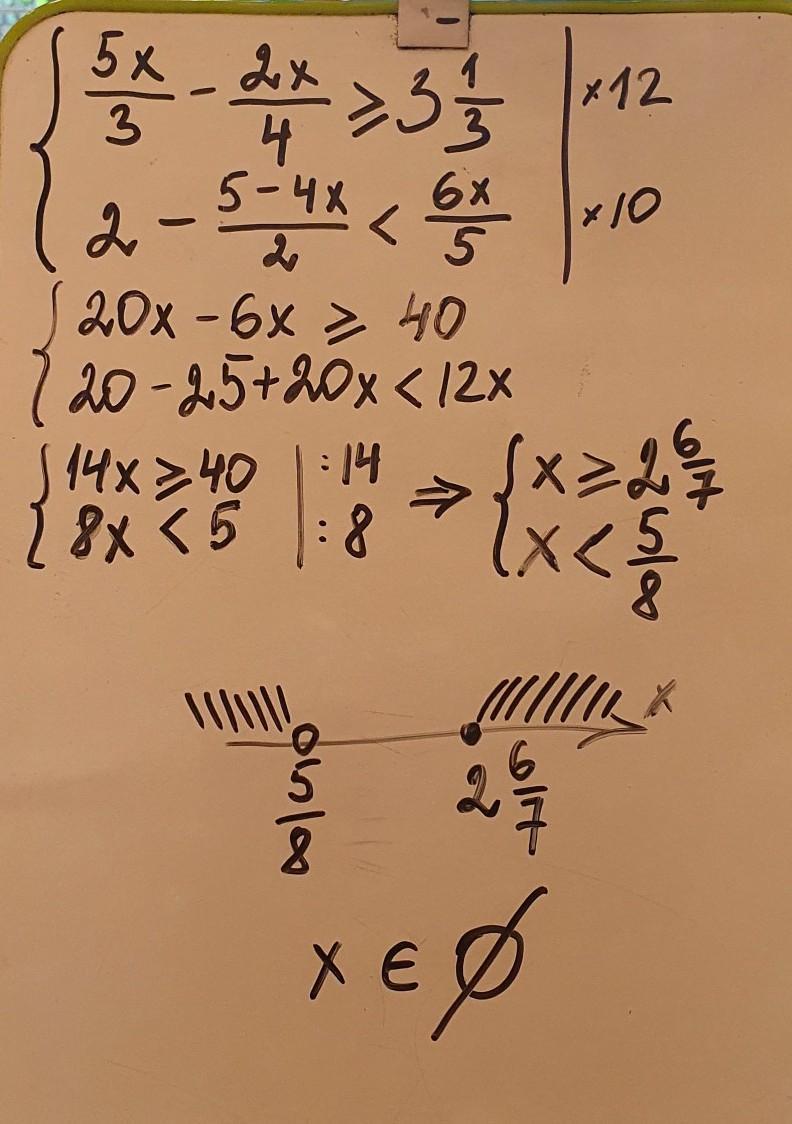 5x/3 - 2x/4 ≥ 3 1/3 | ×12
2 - (5-4x)/2 < 6x/5 | ×10
20x - 6x ≥ 40
20 - 25 + 20x < 12x
14x ≥ 40 | :14 ⇒ x ≥ 2 6/7
8x < 5 | :8 x < 5/8
x
5/8 2 6/7
x ∈ ∅